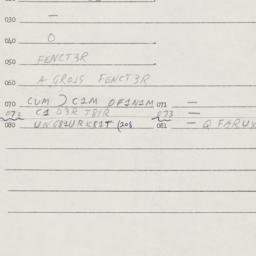 030 —
040 O
050 FENCT3R
060 A GROSS FENCT3R
070 CUM C1M DF1N1M 071 —
072 C1 D3R T81R 073 —
080 (208 081 — Q FARUX